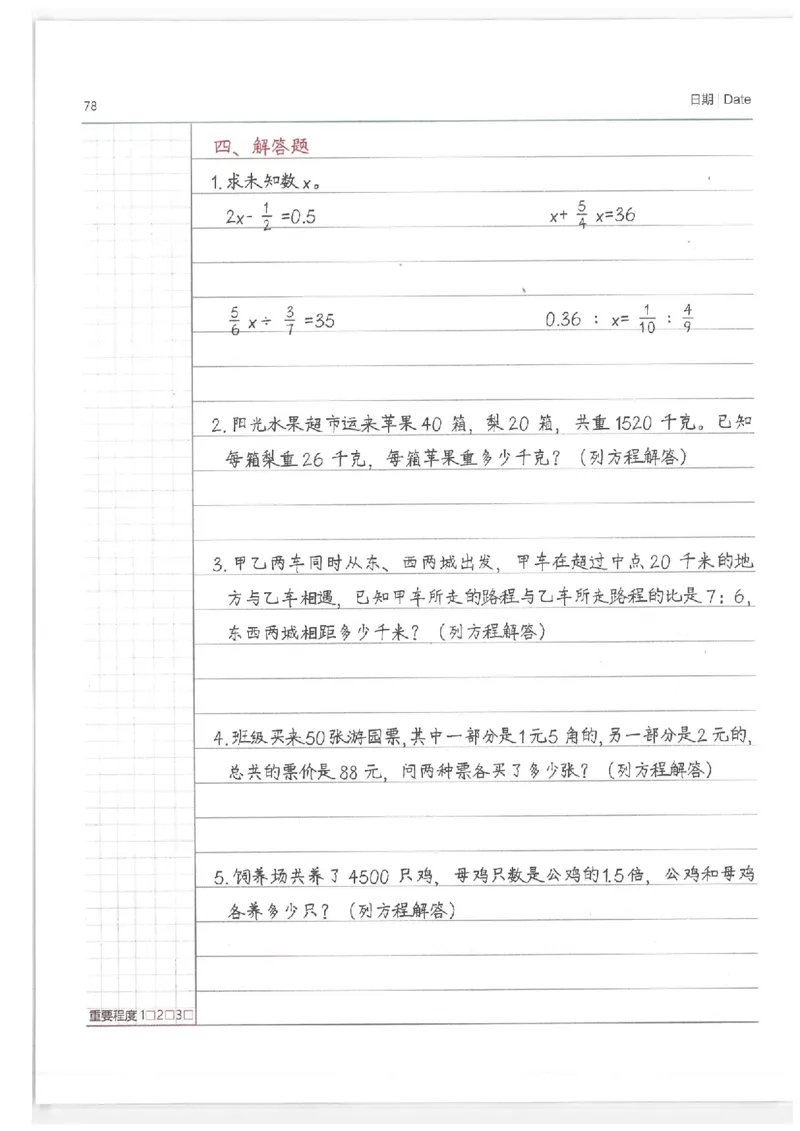 78
日期 | Date
四、解答题
1.求未知数x。
2x- 1/2 =0.5 x+ 5/4 x=36
5/6 x÷ 3/7 =35 0.36 : x= 1/10 : 4/9
2.阳光水果超市运来苹果40箱，梨20箱，共重1520千克。已知
每箱梨重26千克，每箱苹果重多少千克？（列方程解答）
3.甲乙两车同时从东、西两城出发，甲车在超过中点20千米的地
方与乙车相遇，已知甲车所走的路程与乙车所走路程的比是7：6，
东西两城相距多少千米？（列方程解答）
4.班级买来50张游园票,其中一部分是1元5角的,另一部分是2元的,
总共的票价是88元，问两种票各买了多少张？（列方程解答）
5.饲养场共养了4500只鸡，母鸡只数是公鸡的1.5倍，公鸡和母鸡
各养多少只？（列方程解答）
重要程度1□2□3□